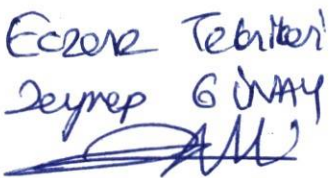 Eczane Teknikeri
Zeynep GÜNAY